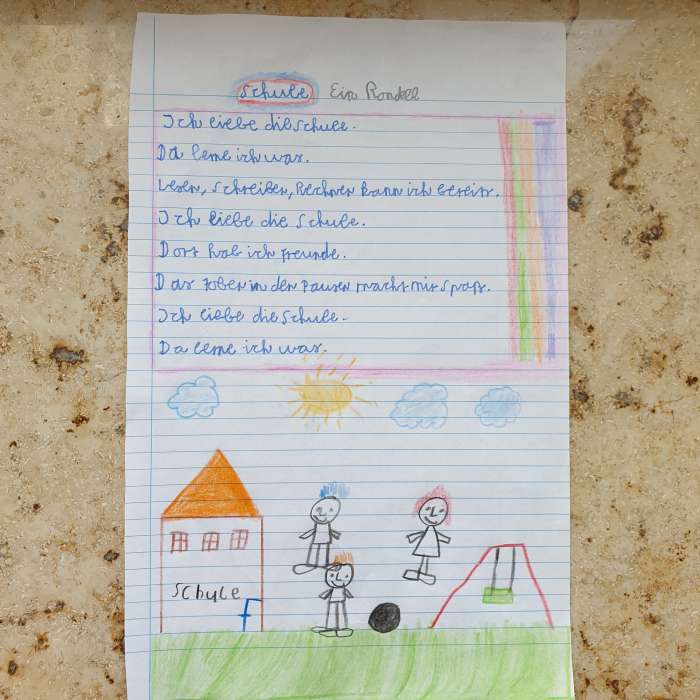 Schule Ein Rondell
Ich liebe die Schule.
Da lerne ich was.
Lesen, Schreiben, Rechnen kann ich bereits.
Ich liebe die Schule.
Dort hab ich Freunde.
Das Toben in den Pausen macht mir Spaß.
Ich liebe die Schule.
Da lerne ich was.
Schule